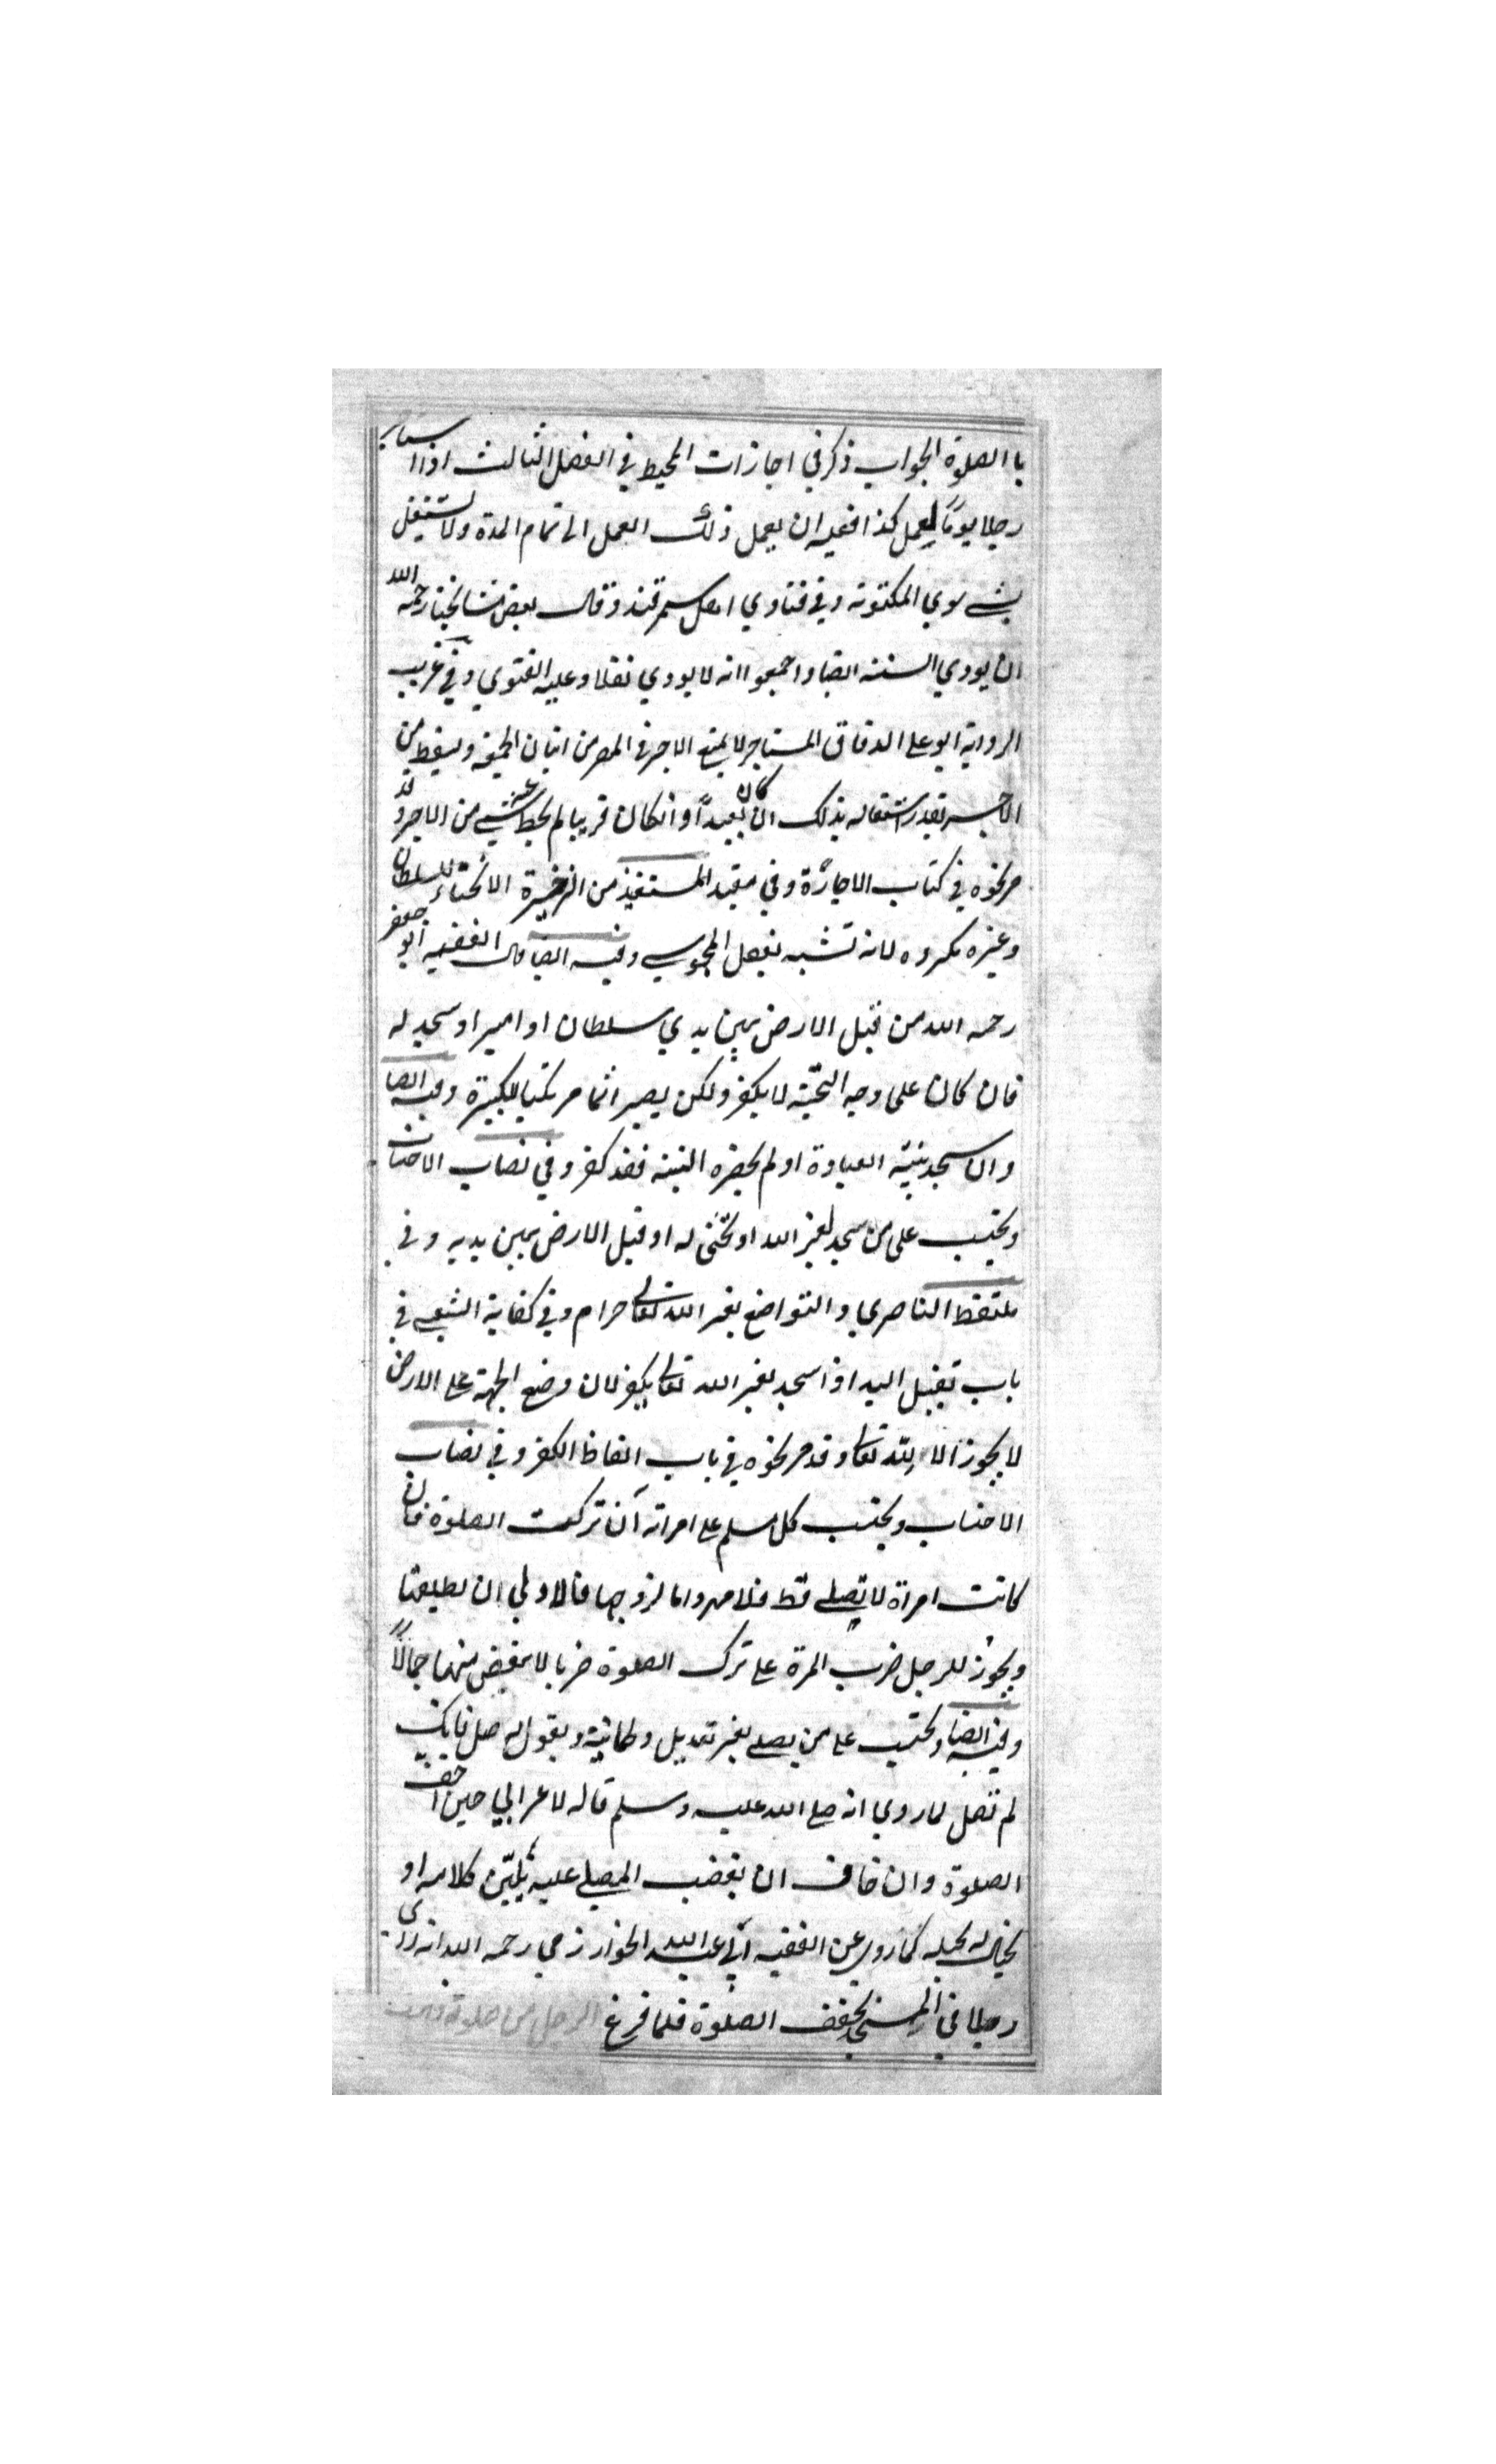 با الصلوة الجواب ذكر في اجازات المحيط في الفصل الثالث اذا استاجر
رجلا يوما ليعمل كذا فعليه ان يعمل ذلك العمل الى تمام المدة ولا يشتغل
بشي سوي المكتوبة وفي فتاوي اهل سمرقند وقال بعض مشائخنا رحمه الله
ان يودي السنة ايضا واجمعوا انه لا يودي نفلا وعليه الفتوي وفي غريب
الرواية ابو علي الدقاق المستاجر لا يمنع الاجير في المصر من اتيان الجمعة ويسقط من
الاجر بقدر اشتغاله بذلك ان كان بعيدًا وانكان قريبا لم يحط عنه شي من الاجر وقد
مر نحوه في كتاب الاجارة وفي مفيد المستفيد من الذخيرة الانحناء للسلطان
وغيره مكروه لانه تشبه بفعل المجوسي وفيه ايضا قال الفقيه ابو جعفر
رحمه الله من قبل الارض بين يدي سلطان او امير او سجد له
فان كان على وجه التحية لا يكفر ولكن يصير اثما مرتكبا للكبيرة وفيه ايضا
وان سجد بنية العبادة او لم يحضره النية فقد كفر وفي نصاب الاحتساب
ويحتسب على من سجد لغير الله او تحنى له او قبل الارض بين يديه وفي
ملتقط الناصري والتواضع لغير الله تعالى حرام وفي كفاية الشعبي في
باب تقبيل اليد اذا سجد لغير الله تعالى يكفر لان وضع الجبهة على الارض
لا يجوز الا لله تعالى وقد مر نحوه في باب الفاظ الكفر وفي نصاب
الاحتساب ويحتسب كل مسلم على امراته ان تركت الصلوة فان
كانت امراة لا تصلي قط فلا مهر واما لزوجها فالاولي ان يطلقها
ويجوز للرجل ضرب المرة على ترك الصلوة ضربا لا ينقض منها جمالًا
وفيه ايضا ويحتسب على من يصلي بغير تعديل وطمانية ويقول له صل فانك
لم تصل لما روي انه صلي الله عليه وسلم قاله لاعرابي حين اخف
الصلوة وان خاف ان يغضب المصلي عليه يليّن كلامه او
يحتال له بحيلة كما روي عن الفقيه ابي عبد الله الخوارزمي رحمه الله انه راي
رجلا في المسجد يخفف الصلوة فلما فرغ الرجل من صلوته